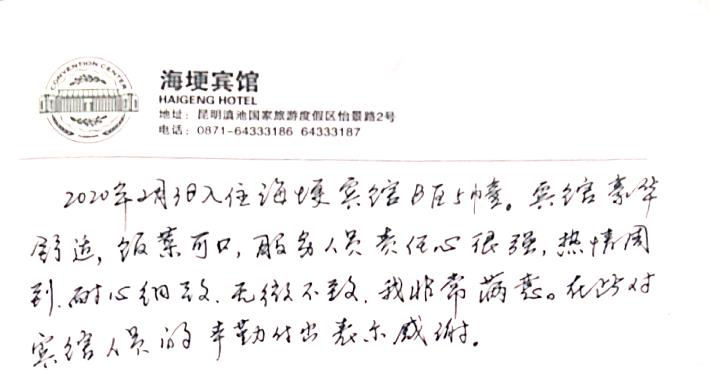 CONVENTION CENTER
海埂宾馆
HAIGENG HOTEL
地址：昆明滇池国家旅游度假区怡景路2号
电话：0871-64333186 64333187
2020年2月3日入住海埂宾馆B区5幢。宾馆豪华
舒适，饭菜可口，服务人员责任心很强，热情周
到、耐心细致、无微不致，我非常满意。在此对
宾馆人员的辛勤付出表示感谢。